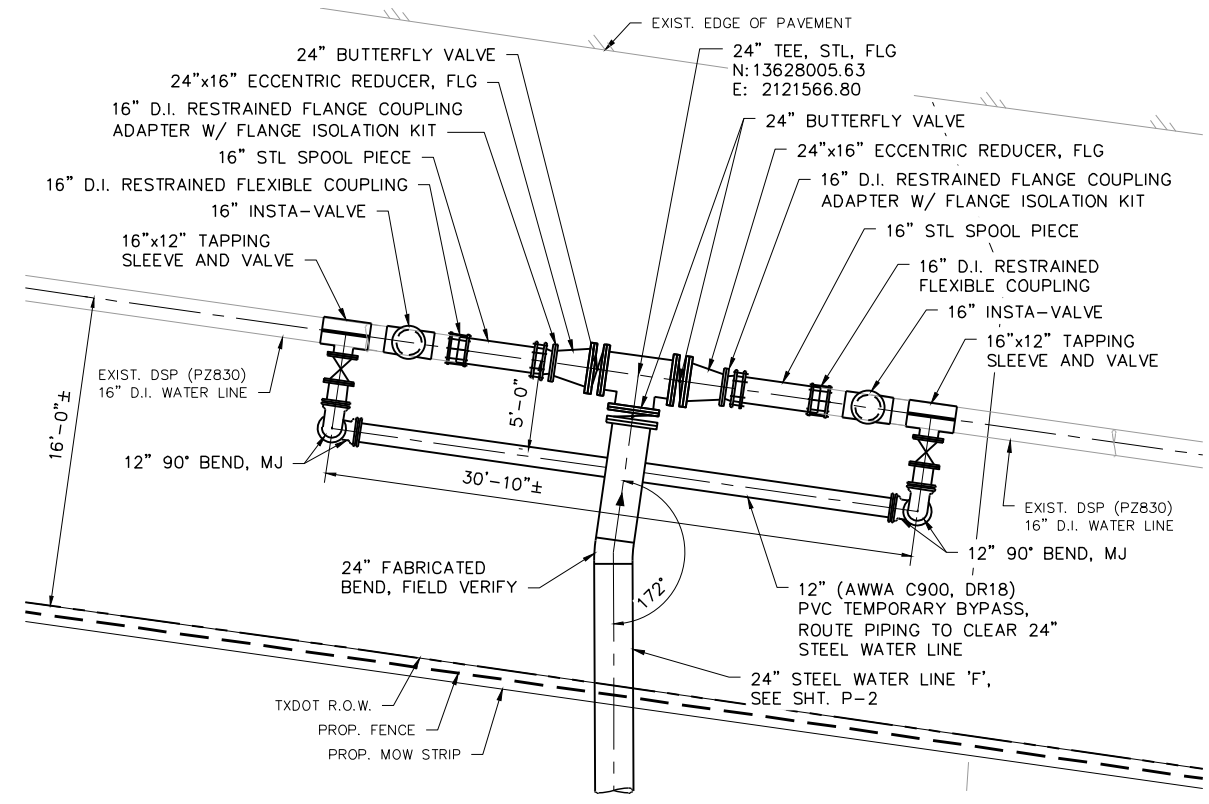 EXIST. EDGE OF PAVEMENT
24" BUTTERFLY VALVE
24"x16" ECCENTRIC REDUCER, FLG
16" D.I. RESTRAINED FLANGE COUPLING
ADAPTER W/ FLANGE ISOLATION KIT
16" STL SPOOL PIECE
16" D.I. RESTRAINED FLEXIBLE COUPLING
16" INSTA-VALVE
16"x12" TAPPING
SLEEVE AND VALVE
24" TEE, STL, FLG
N:13628005.63
E: 2121566.80
24" BUTTERFLY VALVE
24"x16" ECCENTRIC REDUCER, FLG
16" D.I. RESTRAINED FLANGE COUPLING
ADAPTER W/ FLANGE ISOLATION KIT
16" STL SPOOL PIECE
16" D.I. RESTRAINED
FLEXIBLE COUPLING
16" INSTA-VALVE
16"x12" TAPPING
SLEEVE AND VALVE
EXIST. DSP (PZ830)
16" D.I. WATER LINE
16'-0"±
5'-0"
12" 90° BEND, MJ
30'-10"±
EXIST. DSP (PZ830)
16" D.I. WATER LINE
12" 90° BEND, MJ
24" FABRICATED
BEND, FIELD VERIFY
172°
12" (AWWA C900, DR18)
PVC TEMPORARY BYPASS,
ROUTE PIPING TO CLEAR 24"
STEEL WATER LINE
24" STEEL WATER LINE 'F',
SEE SHT. P-2
TXDOT R.O.W.
PROP. FENCE
PROP. MOW STRIP